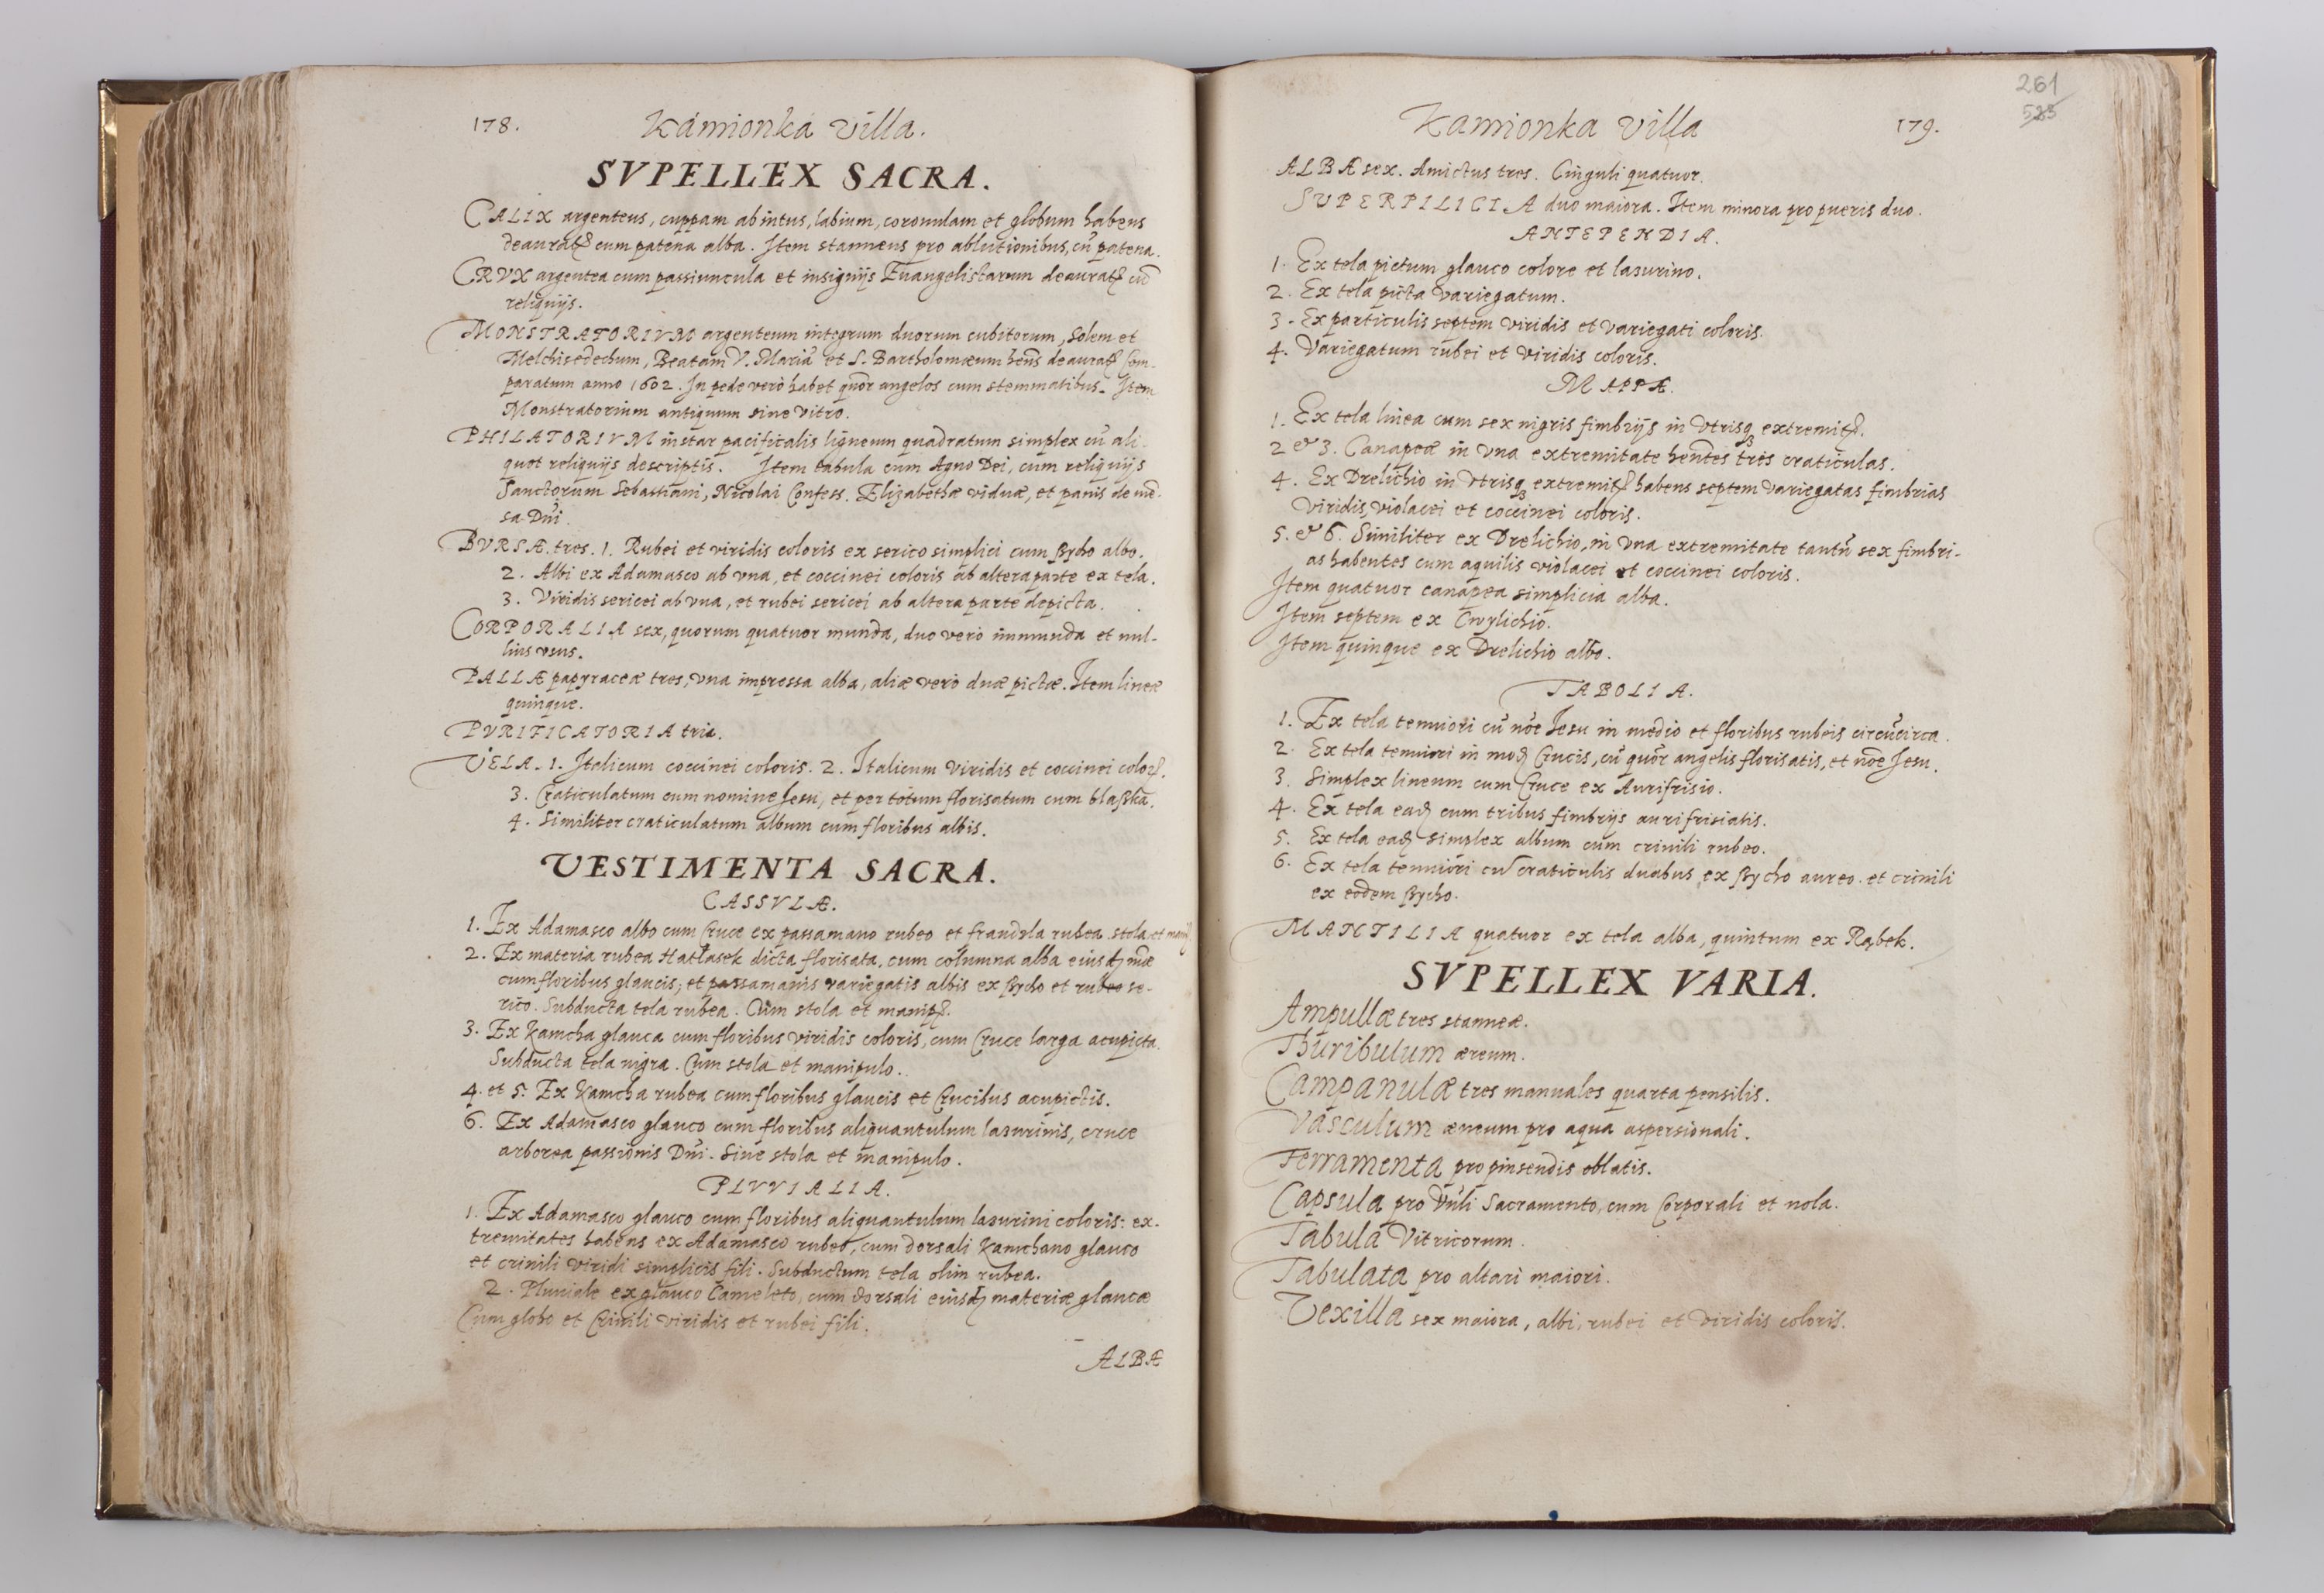 178. Kamionka Villa.
SVPELLEX SACRA.
CALIX argenteus, cuppam ab intus, labium, coronulam et globum habens
deauratū cum patena alba. Item stanneus pro ablutionibus, cū patena.
CRVX argentea cum passiuncula et insignijs Euangelistarum deaurat cū
reliquijs.
MONSTRATORIVM argenteum integrum duorum cubitorum, Solem et
Melchisedechum, Beatam V. Mariā et S. Bartholomæum hēns deaurat Com-
paratum anno 1602. In pede verò habet quōr angelos cum stemmatibus. Item
Monstratorium antiquum sine vitro.
PHILATORIVM instar pacificalis ligneum quadratum simplex cū ali-
quot reliquijs descriptis. Item tabula cum Agno Dei, cum reliquijs
Sanctorum Sebastiani, Nicolai Confess. Elizabethæ viduæ, et panis de mē-
sa Dnī.
BVRSÆ tres. 1. Rubei et viridis coloris ex serico simplici cum ßycho albo.
2. Albi ex Adamasco ab vna, et coccinei coloris ab altera parte ex tela.
3. Viridis sericei ab vna, et rubei sericei ab altera parte depicta.
CORPORALIA sex, quorum quatuor munda, duo verò immunda et nul-
lius vsus.
PALLÆ papyraceæ tres, vna impressa alba, aliæ verò duæ pictæ. Item lineæ
quinque.
PVRIFICATORIA tria.
VELA. 1. Italicum coccinei coloris. 2. Italicum viridis et coccinei color.
3. Craticulatum cum nomine Iesu, et per totum florisatum cum blaßka.
4. Similiter craticulatum album cum floribus albis.
VESTIMENTA SACRA.
CASSVLÆ.
1. Ex Adamasco albo cum Cruce ex passamano rubeo et frandzla rubea stola et man
2. Ex materia rubea Hatłasek dicta florisata, cum columna alba eiusd mæ
cum floribus glaucis, et passamanis variegatis albis ex ßycho et rubeo se-
rico. Subducta tela rubea. Cūm stola et manip.
3. Ex Kamcha glauca cum floribus viridis coloris, cum Cruce larga acupicta.
Subducta tela nigra. Cum stola et manipulo.
4. et 5. Ex Kamcha rubea cum floribus glaucis et Crucibus acupictis.
6. Ex Adamasco glauco cum floribus aliquantulum lazurinis, cruce
arborea passionis Dnī. Sine stola et manipulo.
PLVVIALIA.
1. Ex Adamasco glauco cum floribus aliquantulum lazurini coloris: ex-
tremitates habens ex Adamasco rubeo, cum dorsali Kamchano glauco
et crinili viridi simplicis fili. Subductum tela olim rubea.
2. Pluuiale ex glauco Cameleto, cum dorsali eiusd materiæ glaucæ
Cum globo et Crinili viridis et rubei fili.
ALBÆ
261
523
Kamionka Villa 179.
ALBÆ sex. Amictus tres. Cinguli quatuor.
SVPERPILICIA duo maiora. Item minora pro pueris duo.
ANTEPENDIA.
1. Ex tela pictum glauco colore et lazurino.
2. Ex tela picta variegatum.
3. Ex particulis septem viridis et variegati coloris.
4. Variegatum rubei et viridis coloris.
MAPPÆ.
1. Ex tela linea cum sex nigris fimbrijs in vtrisq extremit.
2 & 3. Canapeæ in vna extremitate hēntes tres craticulas.
4. Ex Drelichio in vtrisq extremit habens septem variegatas fimbrias
viridis, violacei et coccinei coloris.
5. & 6. Similiter ex Drelichio, in vna extremitate tantū sex fimbri-
as habentes cum aquilis violacei et coccinei coloris.
Item quatuor canapea simplicia alba.
Item septem ex Cwylichio.
Item quinque ex Drelichio albo.
TABOLIA.
1. Ex tela tenuiori cū nōe Iesu in medio et floribus rubeis circūcirca.
2. Ex tela tenuiori in mod Crucis, cū quōr angelis florisatis, et nōe Iesu.
3. Simplex lineum cum Cruce ex Aurifrisio.
4. Ex tela ead cum tribus fimbrijs aurifrisiatis.
5. Ex tela ead simplex album cum crinili rubeo.
6. Ex tela tenuiori cū craticulis duabus ex ßycho aureo et crinili
ex eodem ßycho.
MANTILIA quatuor ex tela alba, quintum ex Rąbek.
SVPELLEX VARIA.
Ampullæ tres stanneæ.
Thuribulum æreum.
Campanulæ tres manuales quarta pensilis.
Vasculum æneum pro aqua aspersionali.
Ferramenta pro pinsendis oblatis.
Capsula pro Vnli Sacramento, cum Corporali et nola.
Tabula Vitricorum.
Tabulata pro altari maiori.
Vexilla sex maiora, albi, rubei et viridis coloris.